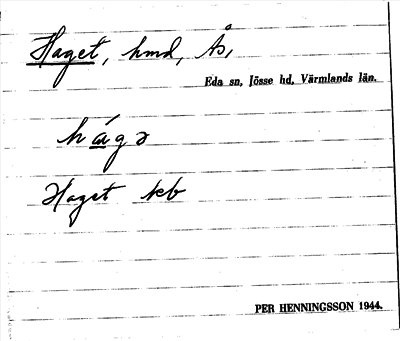 Haget, hmd, Ås,
Eda sn, Jösse hd, Värmlands län.
hágə
Haget kb
PER HENNINGSSON 1944.